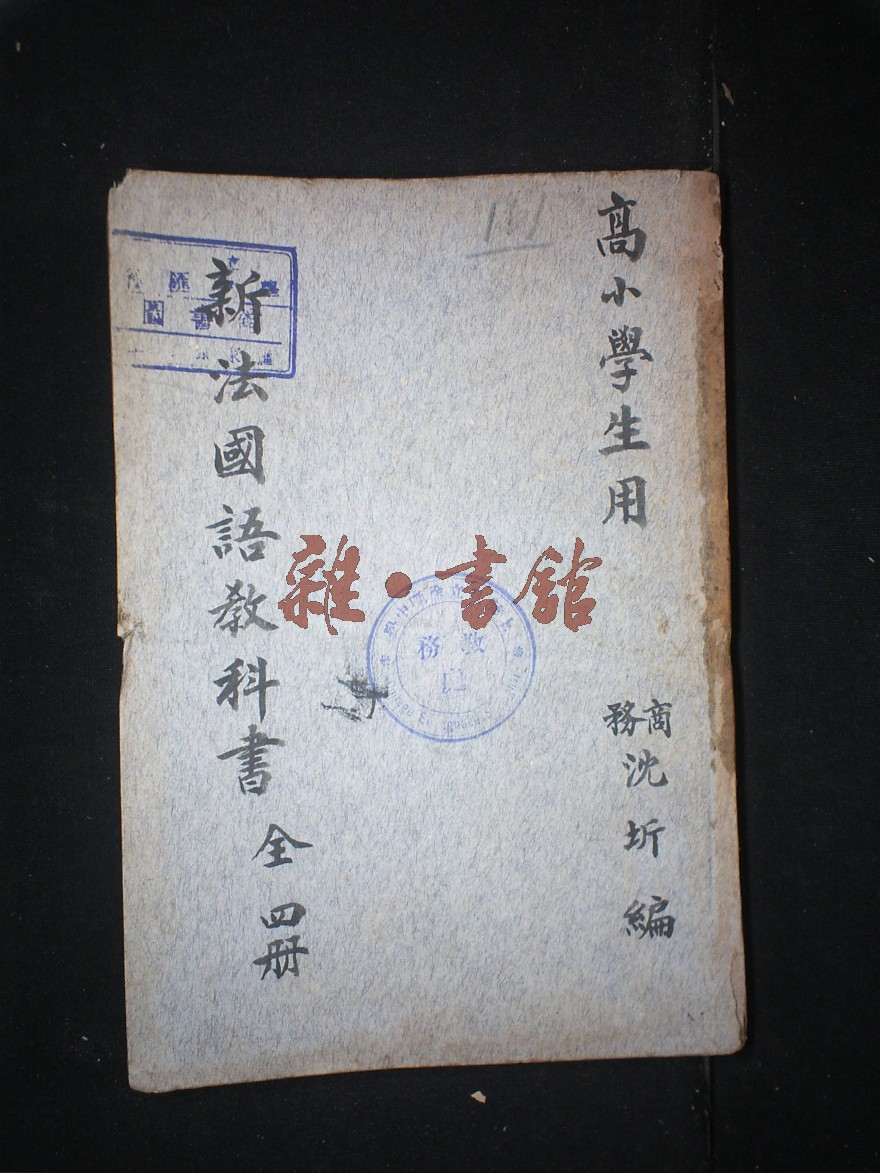 高小學生用
商務
沈圻編
新法國語教科書
全四册
161
雜·書館
教務